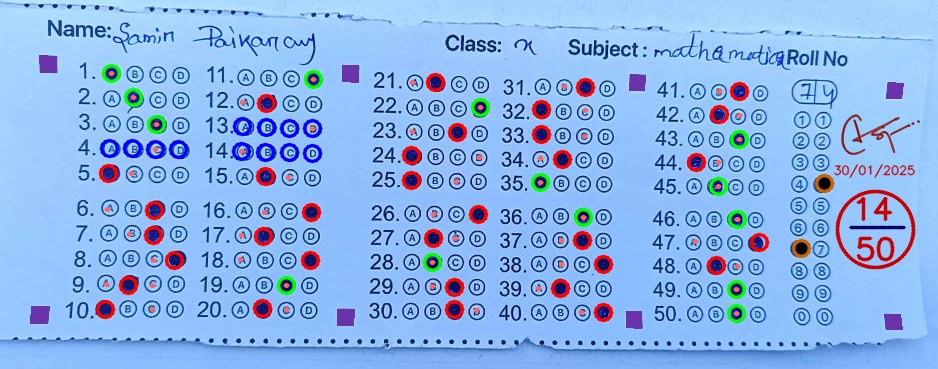 Name: Samin Paikaray
Class: X
Subject: mathematics
Roll No
74
1. B C D
2. A C D
3. A B D
4. A B C D
5. B C D
6. A B D
7. A B D
8. A B C
9. A C D
10. B C D
11. A B C
12. A C D
13. A B C D
14. A B C D
15. A C D
16. A B C
17. A C D
18. A B C
19. A B D
20. A C D
21. A C D
22. A B C
23. A B D
24. B C D
25. B C D
26. A B C
27. A C D
28. A C D
29. A B D
30. A B D
31. A B D
32. B C D
33. B C D
34. A C D
35. B C D
36. A B D
37. A B D
38. A B C
39. A C D
40. A B C
41. A B D
42. A C D
43. A B D
44. B C D
45. A C D
46. A B D
47. A B C
48. A C D
49. A B D
50. A B D
1 1
2 2
3 3
4
5 5
6 6
7
8 8
9 9
0 0
30/01/2025
14
50